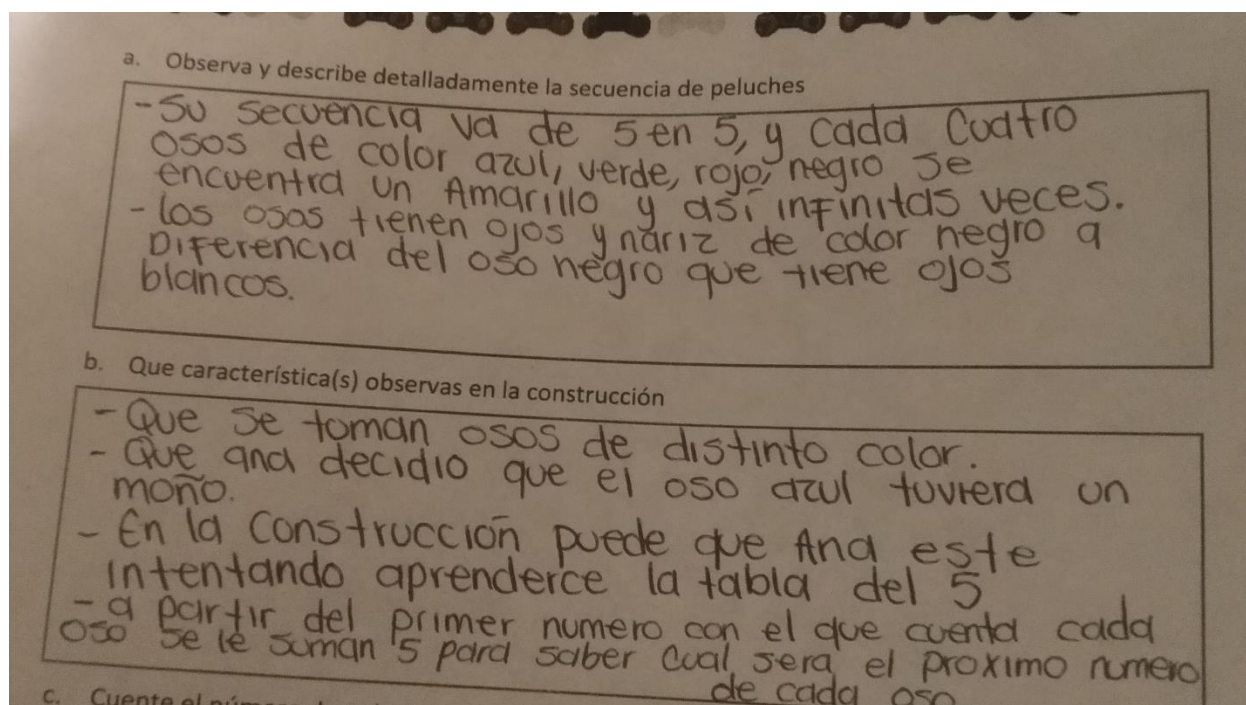 a. Observa y describe detalladamente la secuencia de peluches
- Su secuencia va de 5 en 5, y cada cuatro
osos de color azul, verde, rojo, negro se
encuentra un Amarillo y así infinitas veces.
- los osos tienen ojos y nariz de color negro a
Diferencia del oso negro que tiene ojos
blancos.
b. Que característica(s) observas en la construcción
- Que se toman osos de distinto color.
- Que ana decidio que el oso azul tuviera un
moño.
- En la construcción puede que Ana este
intentando aprenderce la tabla del 5
- a partir del primer numero con el que cuenta cada
oso se le suman 5 para saber cual sera el proximo numero
de cada oso
c. Cuente el